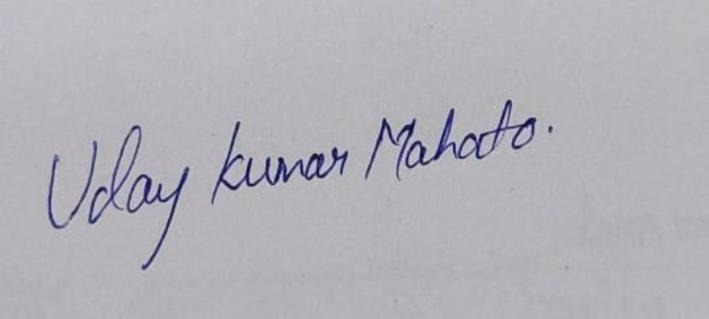 Uday kumar Mahato.